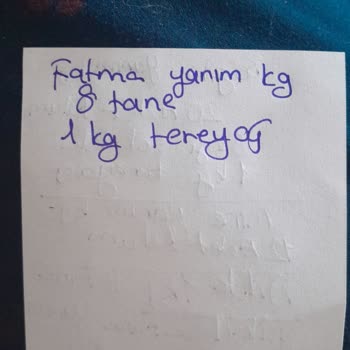 Fatma yarım kg
8 tane
1 kg tereyağ